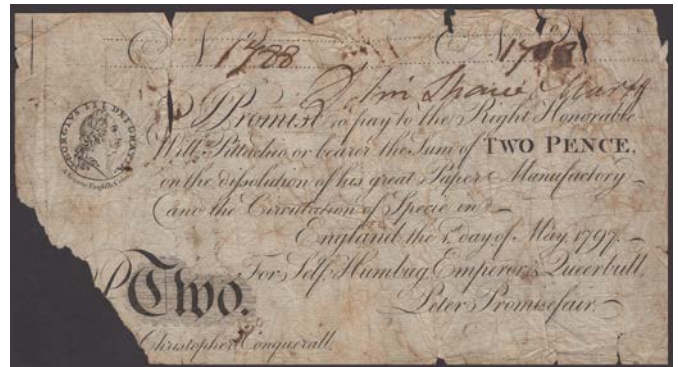 N 1788 N 1788
John
GEORGIVS III DEI GRATIA
I Promise to pay to the Right Honorable
Will.m Pittachio or bearer the Sum of TWO PENCE,
on the dissolution of his great Paper Manufactory
and the Circulation of Specie in
England the 1.st day of May 1797.
For Self, Humbug, Emperor & Queerbull,
Two.
Peter Promisefair.
Christopher Conquerall.